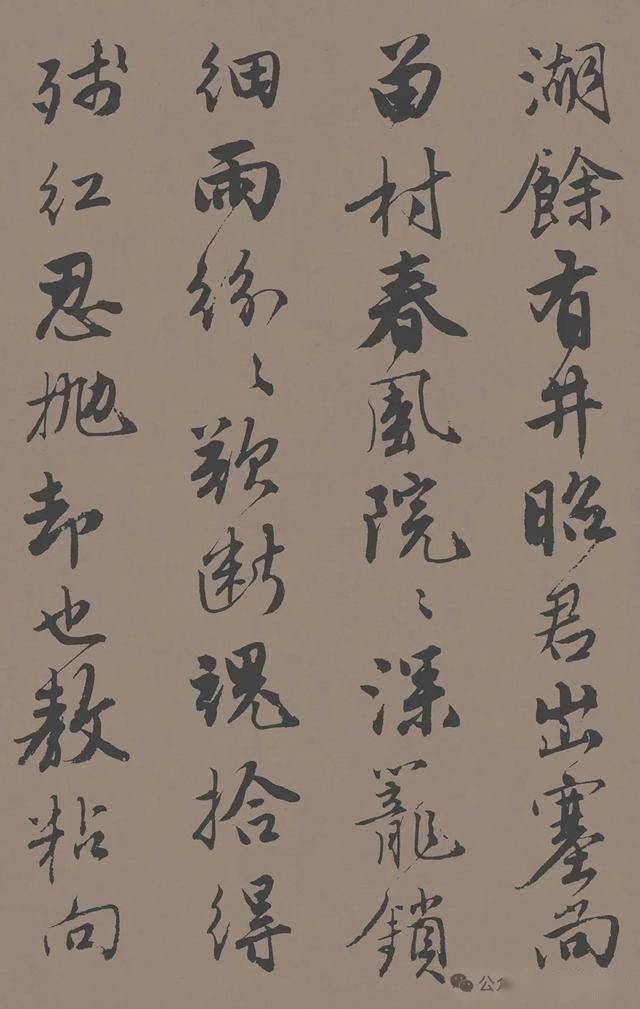 湖餘有井昭君出塞尚
留村春風院〻深籠鎖
細雨紛〻欲斷魂拾得
殘紅忍拋却也教粘向
公